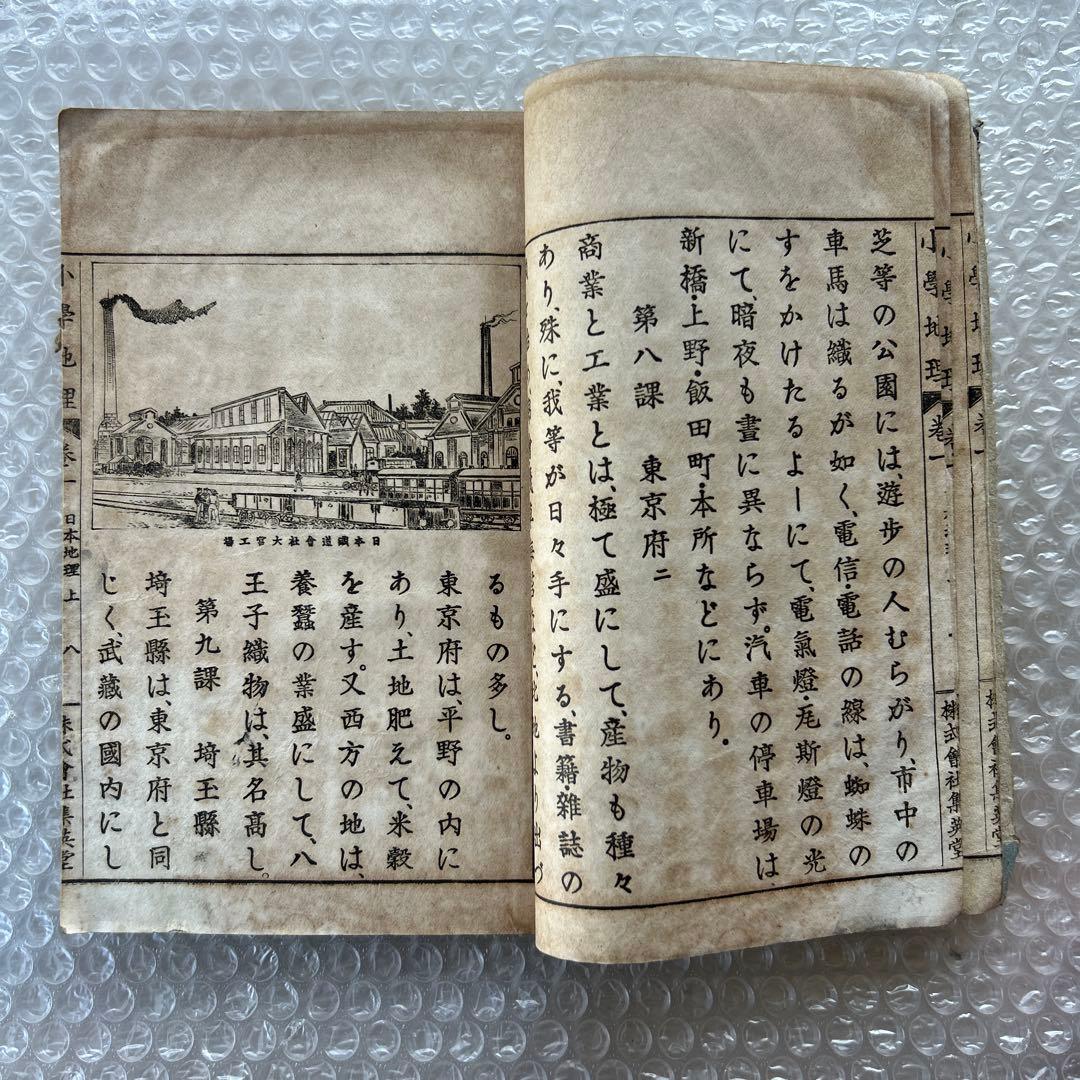 小學地理 卷一
株式會社集英堂
芝等の公園には、遊歩の人むらがり、市中の
車馬は織るが如く、電信・電話の線は、蜘蛛の
すをかけたるよーにて、電氣燈・瓦斯燈の光
にて、暗夜も晝に異ならず。汽車の停車場は、
新橋・上野・飯田町・本所などにあり。
第八課 東京府二
商業と工業とは、極て盛にして、産物も種々
あり、殊に、我等が日々手にする、書籍・雜誌の
日本鐵道會社大宮工場
るもの多し。
東京府は、平野の内に
あり、土地肥えて、米穀
を産す。又西方の地は、
養蠶の業盛にして、八
王子織物は、其名高し。
第九課 埼玉縣
埼玉縣は、東京府と同
じく、武藏の國内にし
小學地理 卷一 日本地理上 八 株式會社集英堂